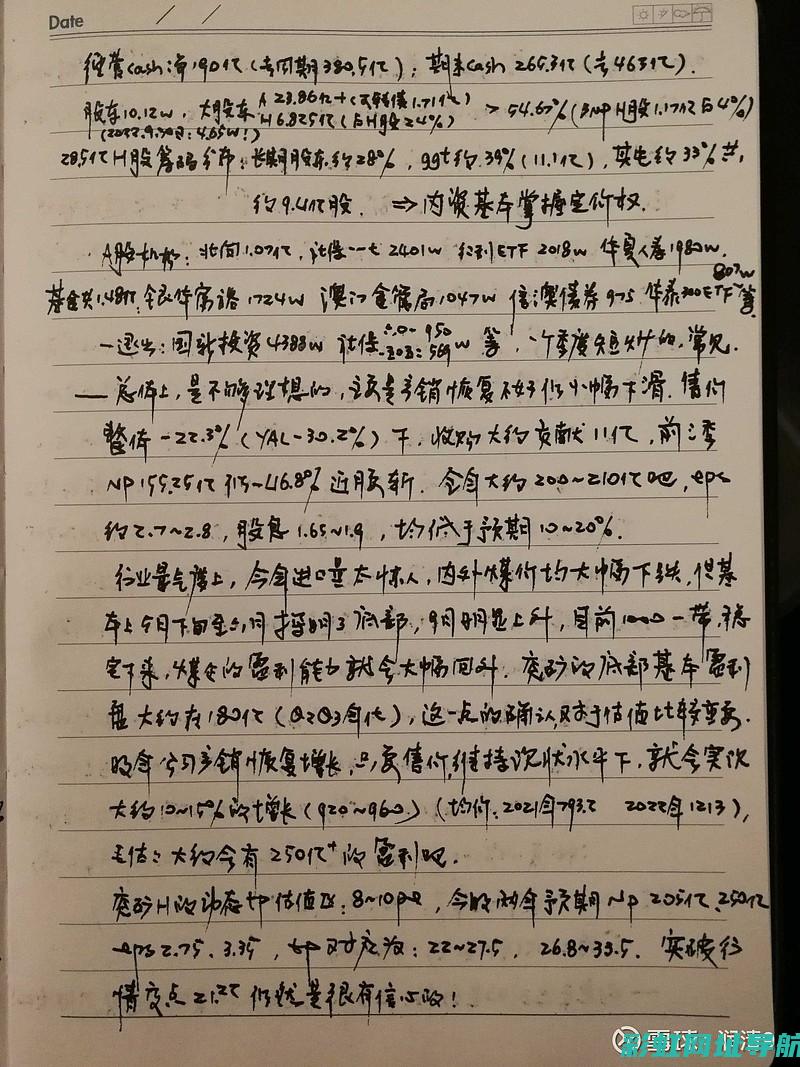 Date
经营cash净190亿(去同期380.5亿);期末cash 265.3亿(去463亿).
股东10.12w,大股东 A 22.86亿+(可转债1.71亿) H 6.825亿(占H股24%) > 54.67%(BNP H股1.17亿占4%)
(2022.9.30日:4.65w!)
28.5亿H股筹码分布:长期股东约28%,ggt约39%(11.1亿),其它约33%#,
约9.4亿股. ⇒ 内资基本掌握定价权.
A股机构:北向1.07亿,社保一七2401w 红利ETF 2018w 华夏人寿1980w.
基金共1.48亿:银华富裕1724w 澳门金管局1047w 信澳债券975 华泰300ETF 807w等
—退出:国新投资4388w 社保 950 569w 等,一个季度短炒的,常见.
— 总体上,是不够理想的,主要是产销恢复不好仍小幅下滑.售价
整体-22.3%(YAL-30.2%)下,收购大约贡献11亿,前三季
NP 155.25亿 -46.8%近腰斩.全年大约200~210亿吧,eps
约2.7~2.8,股息1.65~1.9,均低于预期10~20%.
行业景气度上,今年进口量太惊人,内外煤价均大幅下跌,但基
本上5月下旬至6月探明了底部,9月明显上升,目前1000一带,稳
定下来,煤企的盈利能力就会大幅回升.兖矿的底部基本盈利
盘大约在180亿(Q2Q3年化),这一点的确认对于估值比较重要.
明年公司产销恢复增长,只要售价维持现状水平下,就会实现
大约10~15%的增长(920~960)(均价:2021年793.2 2022年1213),
毛估:大约会有250亿+的盈利吧.
兖矿H的动态tp估值区:8~10pe,今明两年预期Np 205亿、250亿
eps 2.75、3.35,tp对应为:22~27.5,26.8~33.5.突破行
情高点21.22仍然是很有信心的!
雪球
彩虹网址导航